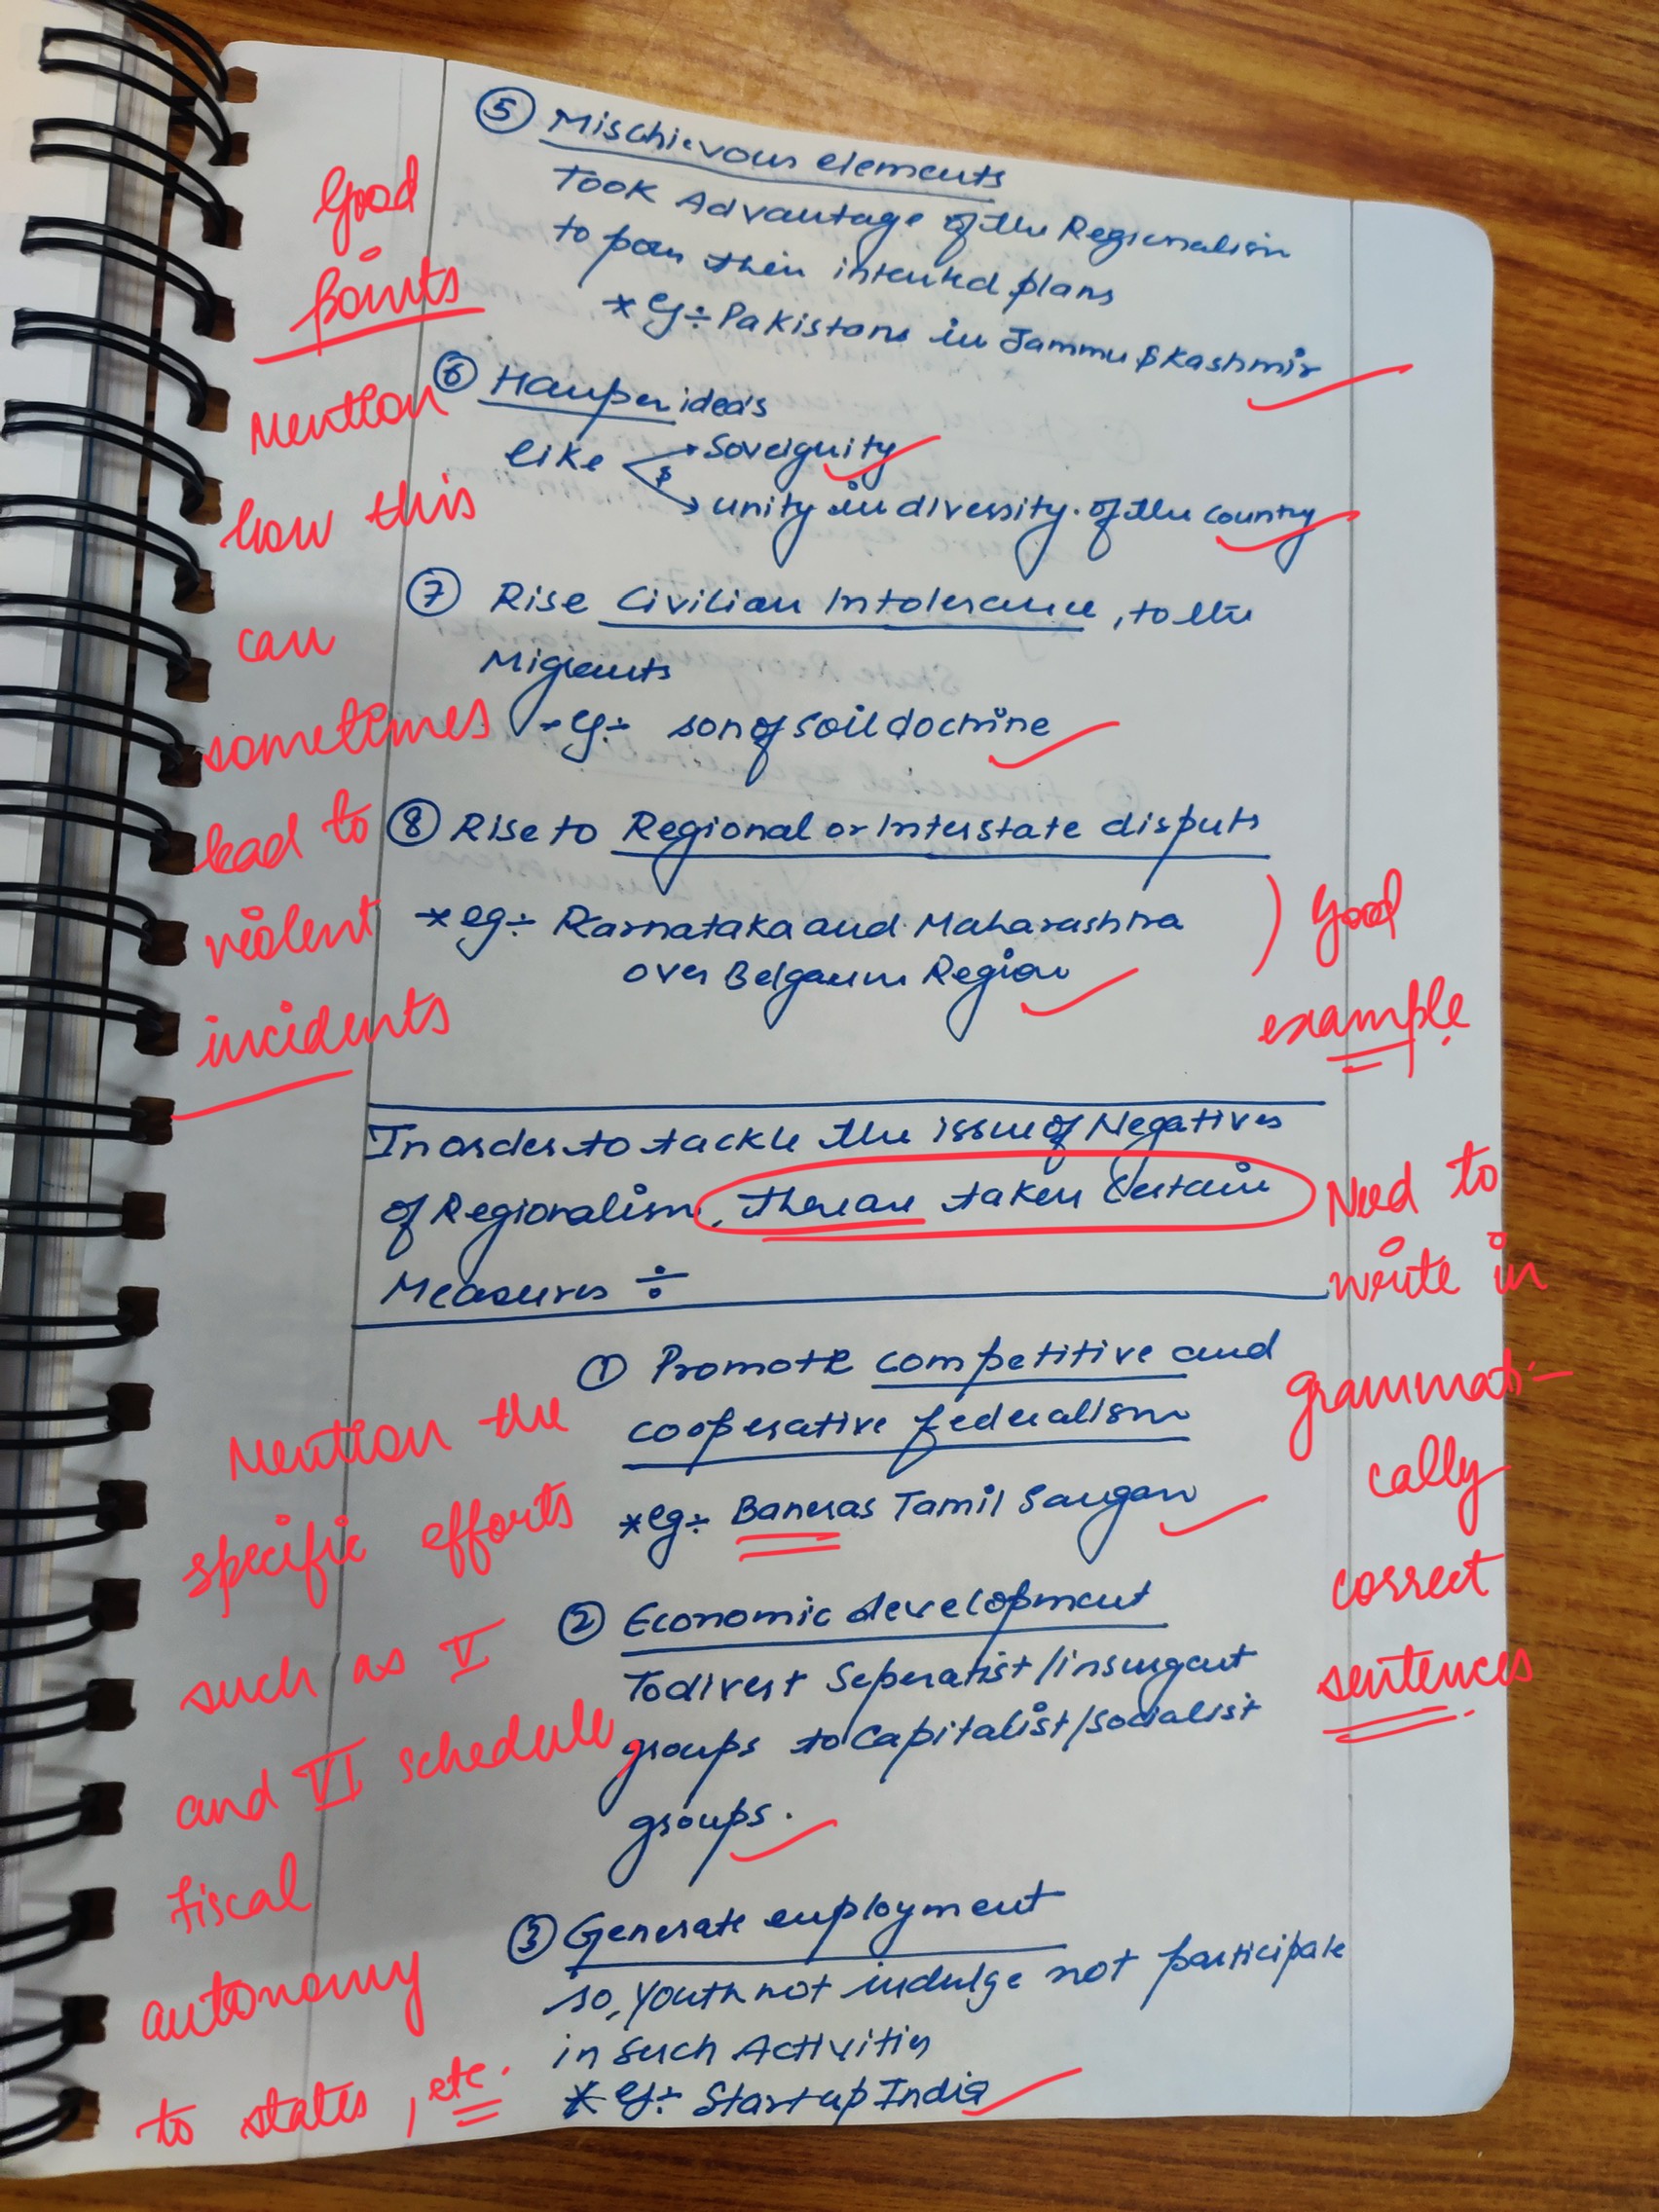 ⑤ Mischievous elements
Took Advantage of the Regionalism
to pass their intented plans
* eg ÷ Pakistans in Jammu & Kashmir
Good
points
Mention
how this
can
sometimes
lead to
violent
incidents
⑥ Hamper idea's
like → Soveignity
&
→ unity in diversity. of the country
⑦ Rise Civilian Intolerance, to the
Migrants
- eg ÷ son of soil doctrine
⑧ Rise to Regional or Interstate disputs
* eg ÷ Karnataka and Maharashtra
over Belgaum Region
) Good
example.
In order to tackle the issue of Negatives
of Regionalism, there are taken certain
Measures ÷
Need to
write in
grammati-
cally
correct
sentences
① Promote competitive and
cooperative federalism
* eg ÷ Baneras Tamil Sangam
② Economic development
To divert Seperatist/insurgent
groups to Capitalist/socialist
groups.
③ Generate employment
so, youth not indulge not participate
in such Activities
* eg ÷ Startup India
Mention the
specific efforts
such as V
and VI schedule,
fiscal
autonomy
to states, etc.